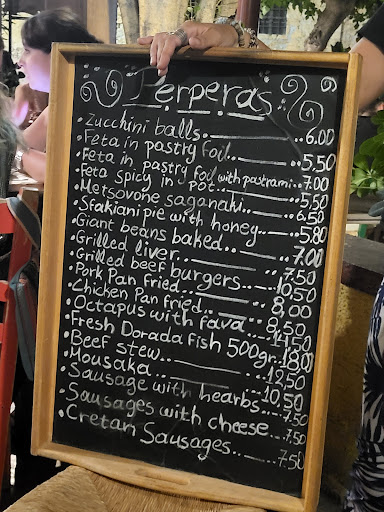 Perperas
• Zucchini balls.......6.00
• Feta in pastry foil.......5,50
• Feta in pastry foil with pastrami..7.00
• Feta spicy in pot.......5,50
• Metsovone saganaki.......6.50
• Sfakiani pie with honey.......5.80
• Giant beans baked.......7.00
• Grilled liver.......7.50
• Grilled beef burgers.......10,50
• Pork Pan fried.......8,00
• Chicken Pan fried.......8,50
• Octapus with fava.......14,50
• Fresh Dorada fish 500gr..18,00
• Beef stew.......12,50
• Mousaka.......10,50
• Sausage with hearbs.......7.50
• Sausages with cheese....7.50
• Cretan Sausages.......7.50